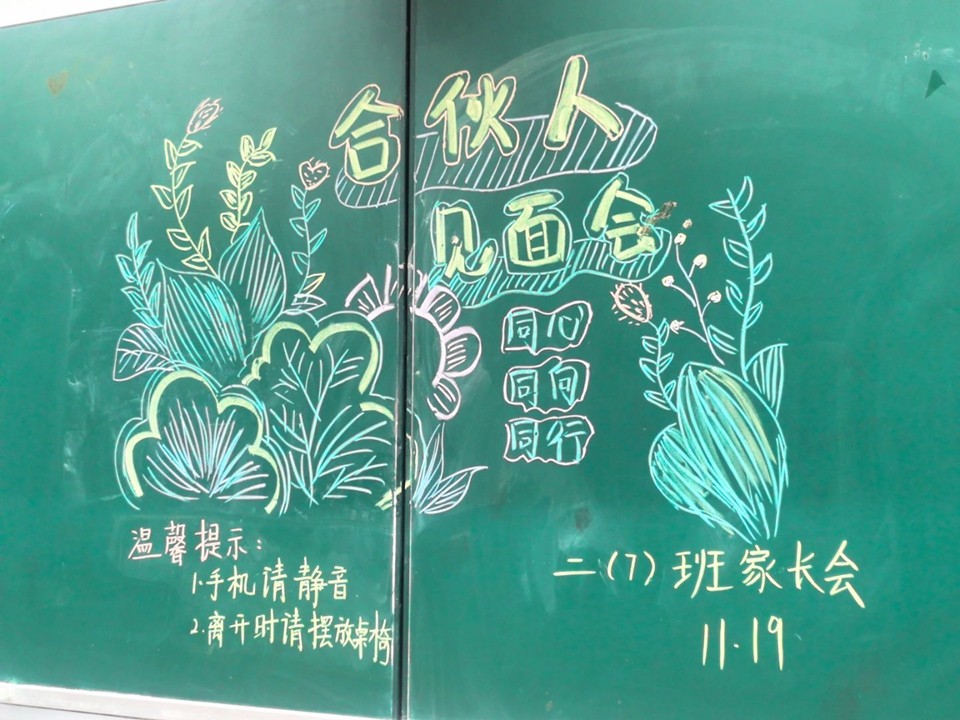 合伙人
见面会
同心
同向
同行
温馨提示：
1.手机请静音
2.离开时请摆放桌椅
二（7）班家长会
11.19